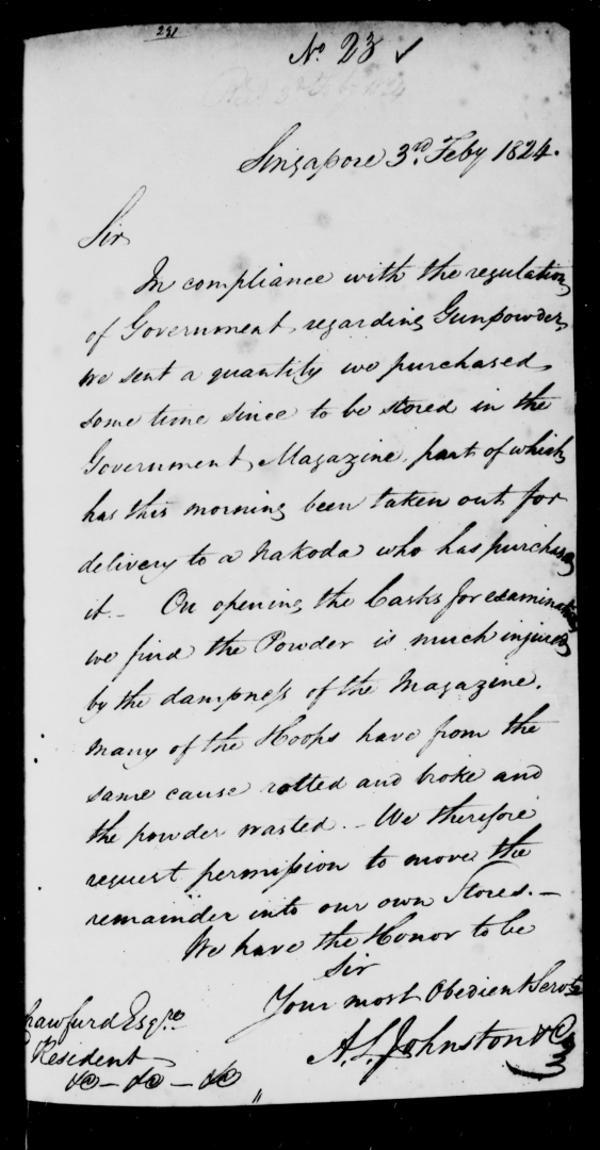 231
No. 23 ✓
Singapore 3rd. Feby 1824.
Sir
In compliance with the regulations
of Government regarding Gunpowder,
we sent a quantity we purchased
some time since to be stored in the
Government Magazine, part of which
has this morning been taken out for
delivery to a Nakoda who has purchased
it. – On opening the Casks for examination
we find the Powder is much injured
by the dampness of the Magazine.
many of the Hoops have from the
same cause rotted and broke and
the powder wasted. – We therefore
request permission to move the
remainder into our own Stores. –
We have the Honor to be
Sir
Your most Obedient Servts
A. L. Johnston & Co
Crawfurd Esqre.
Resident
&c – &c – &c